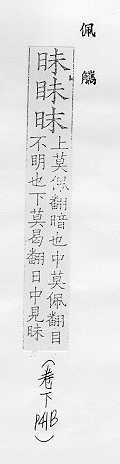 佩觿
昧眛昩
上莫佩翻暗也中莫佩翻目
不明也下莫曷翻日中見昧
(卷下 P41B)